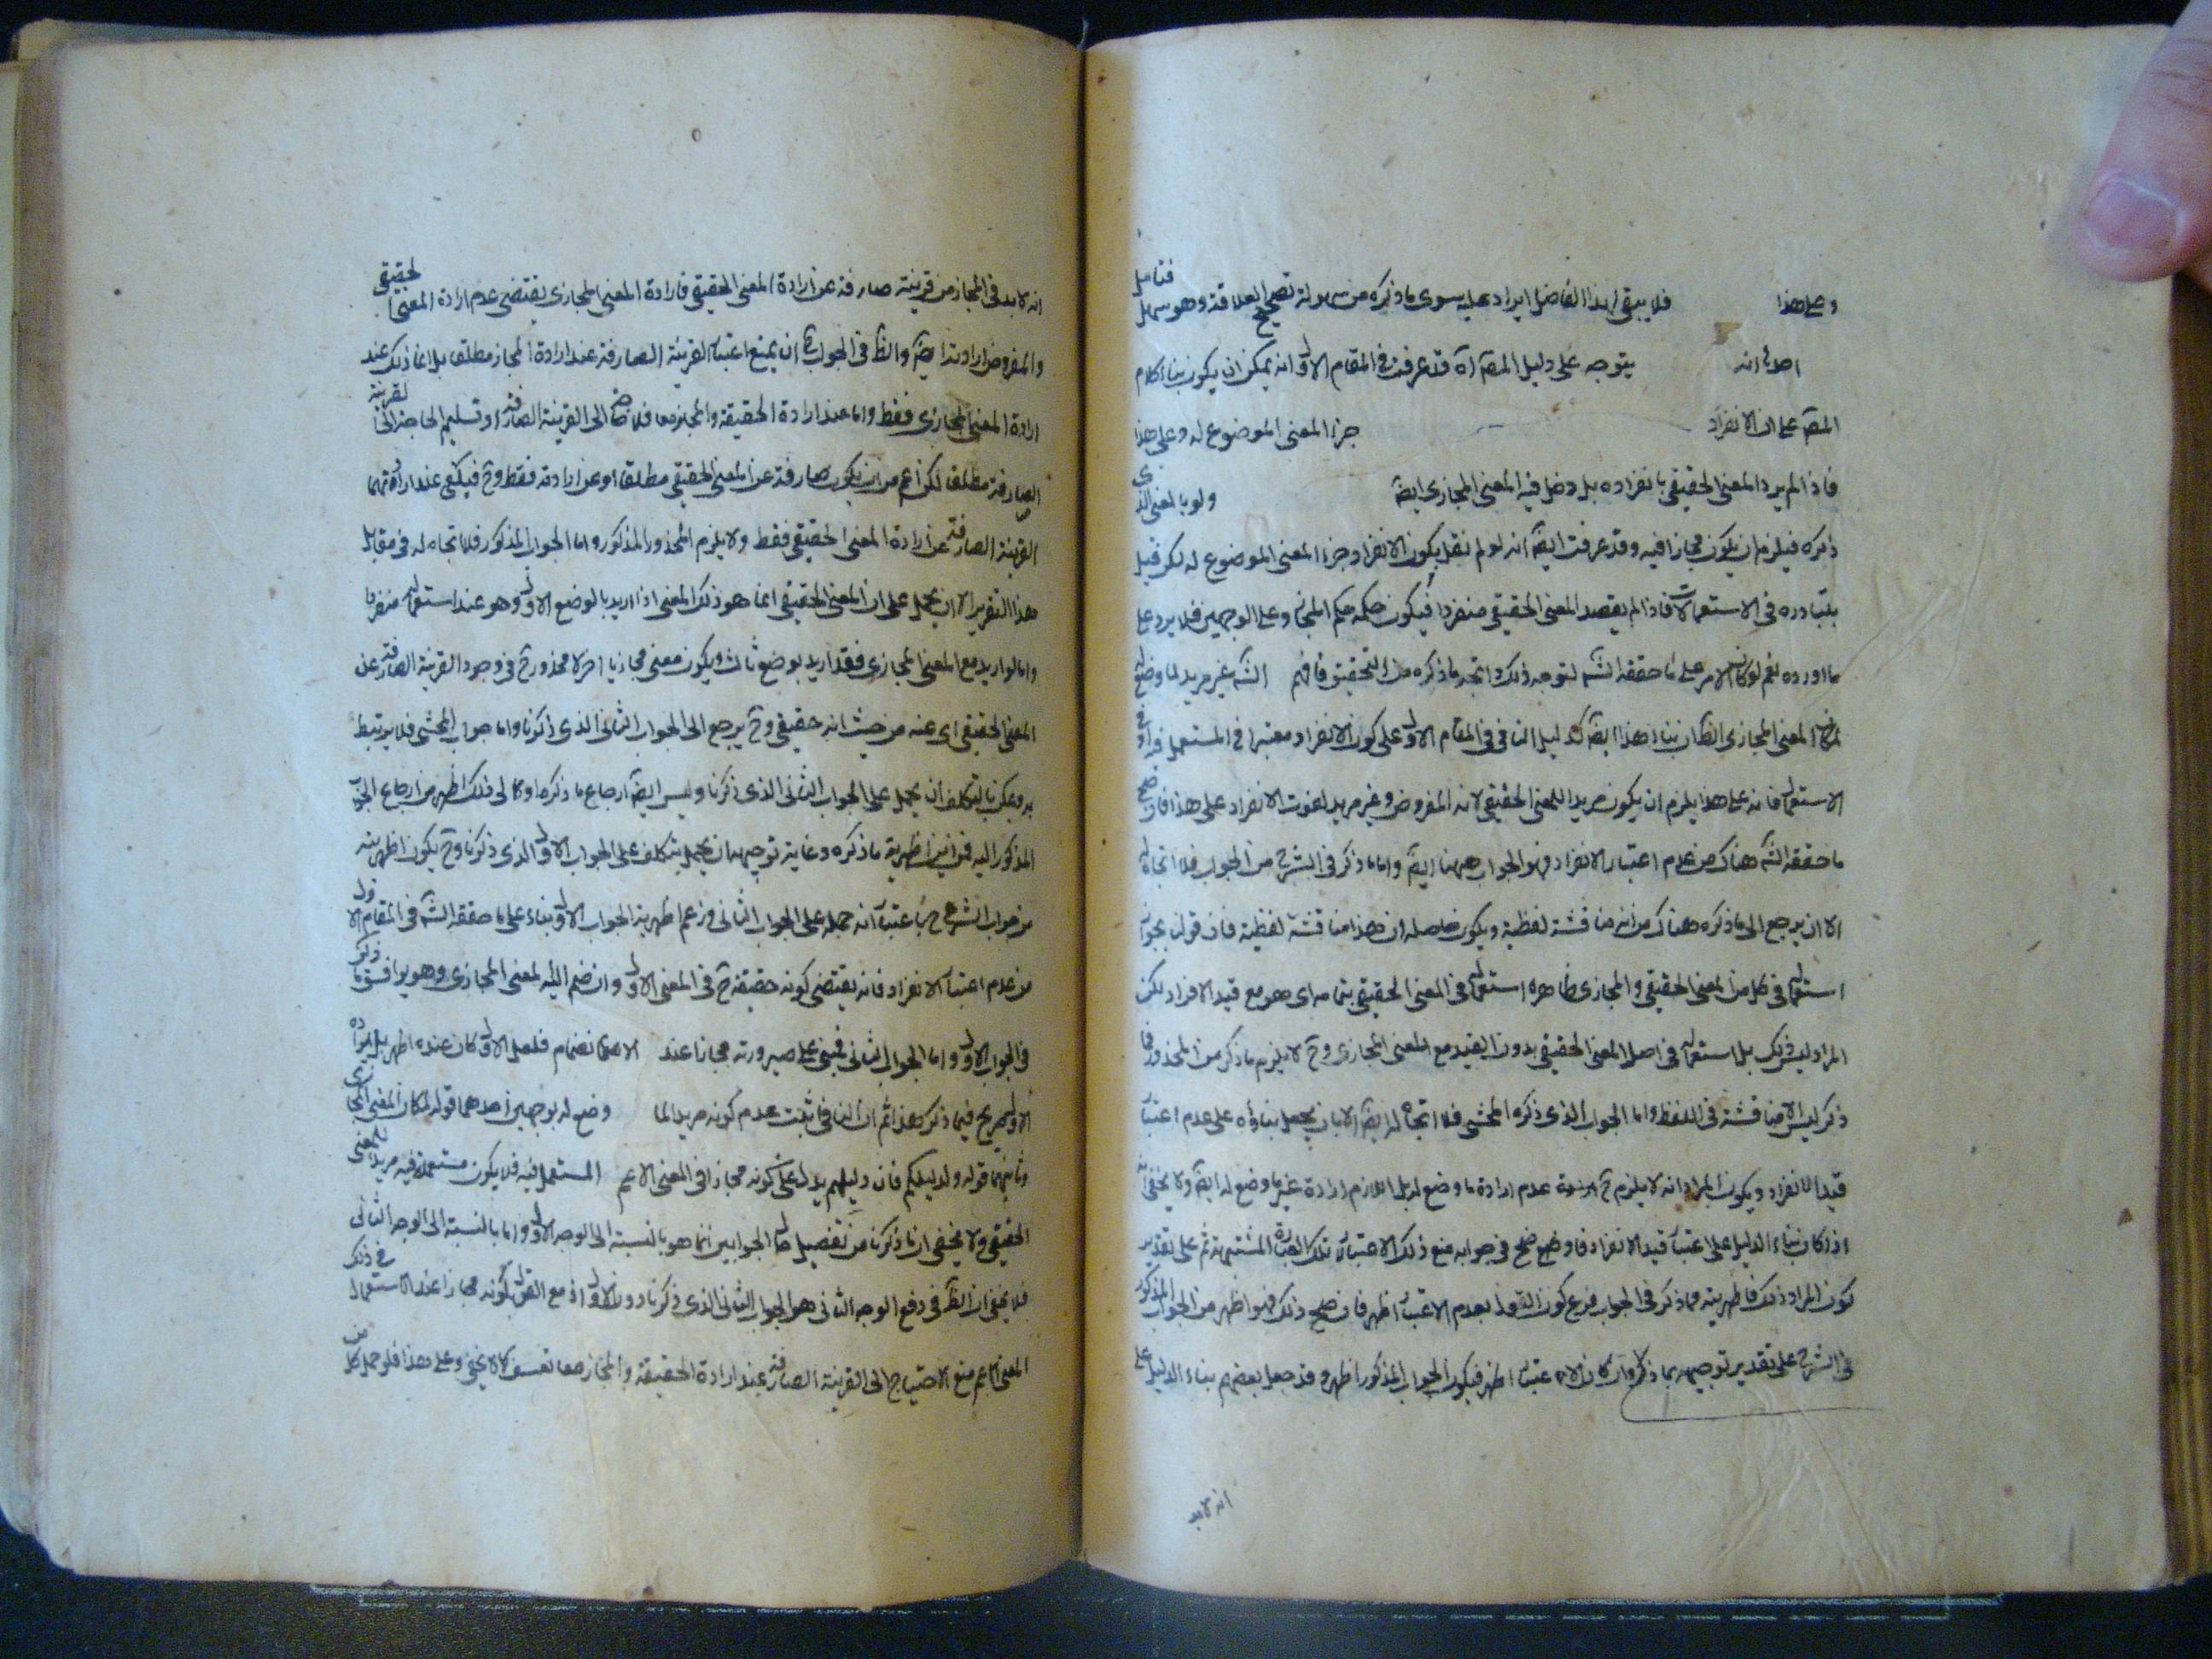 وعلى هذا فلا يبقى لهذا الفاضل ايراد عليه سوى ما ذكره من سهولة تصحيح العلاقة وهو سهل فتامل
انه يتوجه على دليل المصـ آه قد عرفت في المقام الاول انه يمكن ان يكون بناء كلام
المصـ على ان الانفراد جزء المعنى الموضوع له وعلى هذا
فاذا لم يرد المعنى الحقيقي بانفراده بل دخل فيه المعنى المجازي ايضـ ولو بالمعنى الذي
ذكره فيلزم ان يكون مجازا فيه وقد عرفت ايضـ انه لو لم نقل بكون الانفراد جزء المعنى الموضوع له لكن قيل
بتبادره في الاستعمالات فاذا لم يقصد المعنى الحقيقي منفردا فيكون حكمه حكم المجاز وعلى الوجهين فلا يرد عليه
ما اورده نعم لو كان الامر على ما حققه الشـ لتوجه ذلك واتجه ما ذكره من التحقيق فافهم الشـ غير مريد لما وضع له
لمكان المعنى المجازي الظـ ان بناء هذا ايضـ كدليل النافي في المقام الاول على كون الانفراد معتبرا في المستعمل فيه او في
الاستعمال فانه على هذا يلزم ان يكون مريدا للمعنى الحقيقي لانه المفروض وغير مريد له لفوت الانفراد على هذا فان صح
ما حققه الشـ هناك من عدم اعتبار الانفراد فهو الجواب ههنا ايضـ واما ما ذكر في الشرح من الجواب فلا اتجاه له
الا ان يرجع الى ما ذكره هناك من انه مناقشة لفظية ويكون حاصله ان هذا مناقشة لفظية فان قولنا بجواز
استعماله في كل من المعنى الحقيقي والمجازي ظاهره استعماله في المعنى الحقيقي بتمامه اي هو مع قيد الافراد لكن
المراد ليس ذلك بل استعماله في اصل المعنى الحقيقي بدون القيد مع المعنى المجازي وح لا يلزم ما ذكر من المحذور فما
ذكر ليس الا مناقشة في اللفظ واما الجواب الذي ذكره المحشي فلا اتجاه له ايضـ الا بان يجعل بناؤه على عدم اعتبار
قيد الانفراد ويكون المراد انه لا يلزم ح عدم ارادة ما وضع له بل اللازم ارادة غير ما وضع له ايضـ ولا يخفى انه
اذا كان بناء الدليل على اعتبار قيد الانفراد فاوضح في جوابه منع ذلك الاعتبار تلك العبارة المشتبهة ثم على تقدير
كون المراد ذلك فاظهريته مما ذكر في الجواب فرع كون القول بعدم الاعتبار اظهر فان صح ذلك فهو اظهر من الجواب المذكور
في الشرح على تقدير توجيهه بما ذكر وان كان الاعتبار اظهر فيكون الجواب المذكور اظهر وقد جعل بعضهم بناء الدليل على
انه لابد
انه لابد في المجاز من قرينة صارفة عن ارادة المعنى الحقيقي فارادة المعنى المجازي يقتضي عدم ارادة المعنى الحقيقي
والمفروض ارادته ايضـ والظـ في الجواب ح ان يمنع اعتبار القرينة الصارفة عند ارادة المجاز مطلقا بل انما ذلك عند
ارادة المعنى المجازي فقط واما عند ارادة الحقيقة والمجاز معا فلا حاجة الى القرينة الصارفة او تسليم الحاجة الى القرينة
الصارفة مطلقا لكن اعم من ان يكون صارفة عن المعنى الحقيقي مطلقا او عن ارادته فقط وح فيكفي عند ارادتهما
القرينة الصارفة عن ارادة المعنى الحقيقي فقط ولا يلزم المحذور المذكور واما الجواب المذكور فلا اتجاه له في مقابل
هذا التقرير الا ان يحمل على ان المعنى الحقيقي انما هو ذلك المعنى اذا اريد بالوضع الاول وهو عند استعماله منفردا
واما لو اريد مع المعنى المجازي فقد اريد بوضع ثالث ويكون معنى مجازيا اخر لا محذور ح في وجود القرينة الصارفة عن
المعنى الحقيقي اي عنه من حيث انه حقيقي وح يرجع الى الجواب الثاني الذي ذكرنا واما جواب المحشي فلا يرتبط
به ويمكن بالتكلف ان يحمل على الجواب الثاني الذي ذكرنا وليس ايضـ ارجاع ما ذكره اولا الى ذلك اظهر من ارجاع الجواب
المذكور اليه فمن اين اظهرية ما ذكره وغاية توجيهه ان يحمل بتكلف على الجواب الاول الذي ذكرنا وح يكون اظهريته
من جواب الشرح باعتبار انه حمله على الجواب الثاني وزعم اظهرية الجواب الاول بناء على ما حققه الشـ في المقام الاول
من عدم اعتبار الانفراد فانه يقتضي كونه حقيقة ح في المعنى الاول وان ضم اليه المعنى المجازي وهو يوافق ما ذكر
في الجواب الاول واما الجواب الثاني فمبني على صيرورته مجازا عند الانضمام فلعل الاول كان عنده اظهر بل ايراده
الاول صريح فيما ذكر هذا ثم ان النافي اثبت عدم كونه مريدا لما وضع له بوجهين احدهما قوله لمكان المعنى المجازي
وثانيهما قوله ولدليلكم فان دليلهم يدل على كونه مجازا في المعنى الاعم المستعمل فيه فلا يكون مستعمله فيه مريدا للمعنى
الحقيقي ولا يخفى ان ما ذكرنا من تفصيل حال الجوابين انما هو بالنسبة الى الوجه الاول واما بالنسبة الى الوجه الثاني
فلا يخفى ان الظـ في دفع الوجه الثاني هو الجواب الثاني الذي ذكرنا دون الاول اذ مع القول بكونه مجازا عند الاستعمال في ذلك
المعنى الاعم منع الاحتياج الى القرينة الصارفة عند ارادة الحقيقة والمجاز معا تعسف كما لا يخفى وعلى هذا فلو حمل كل من